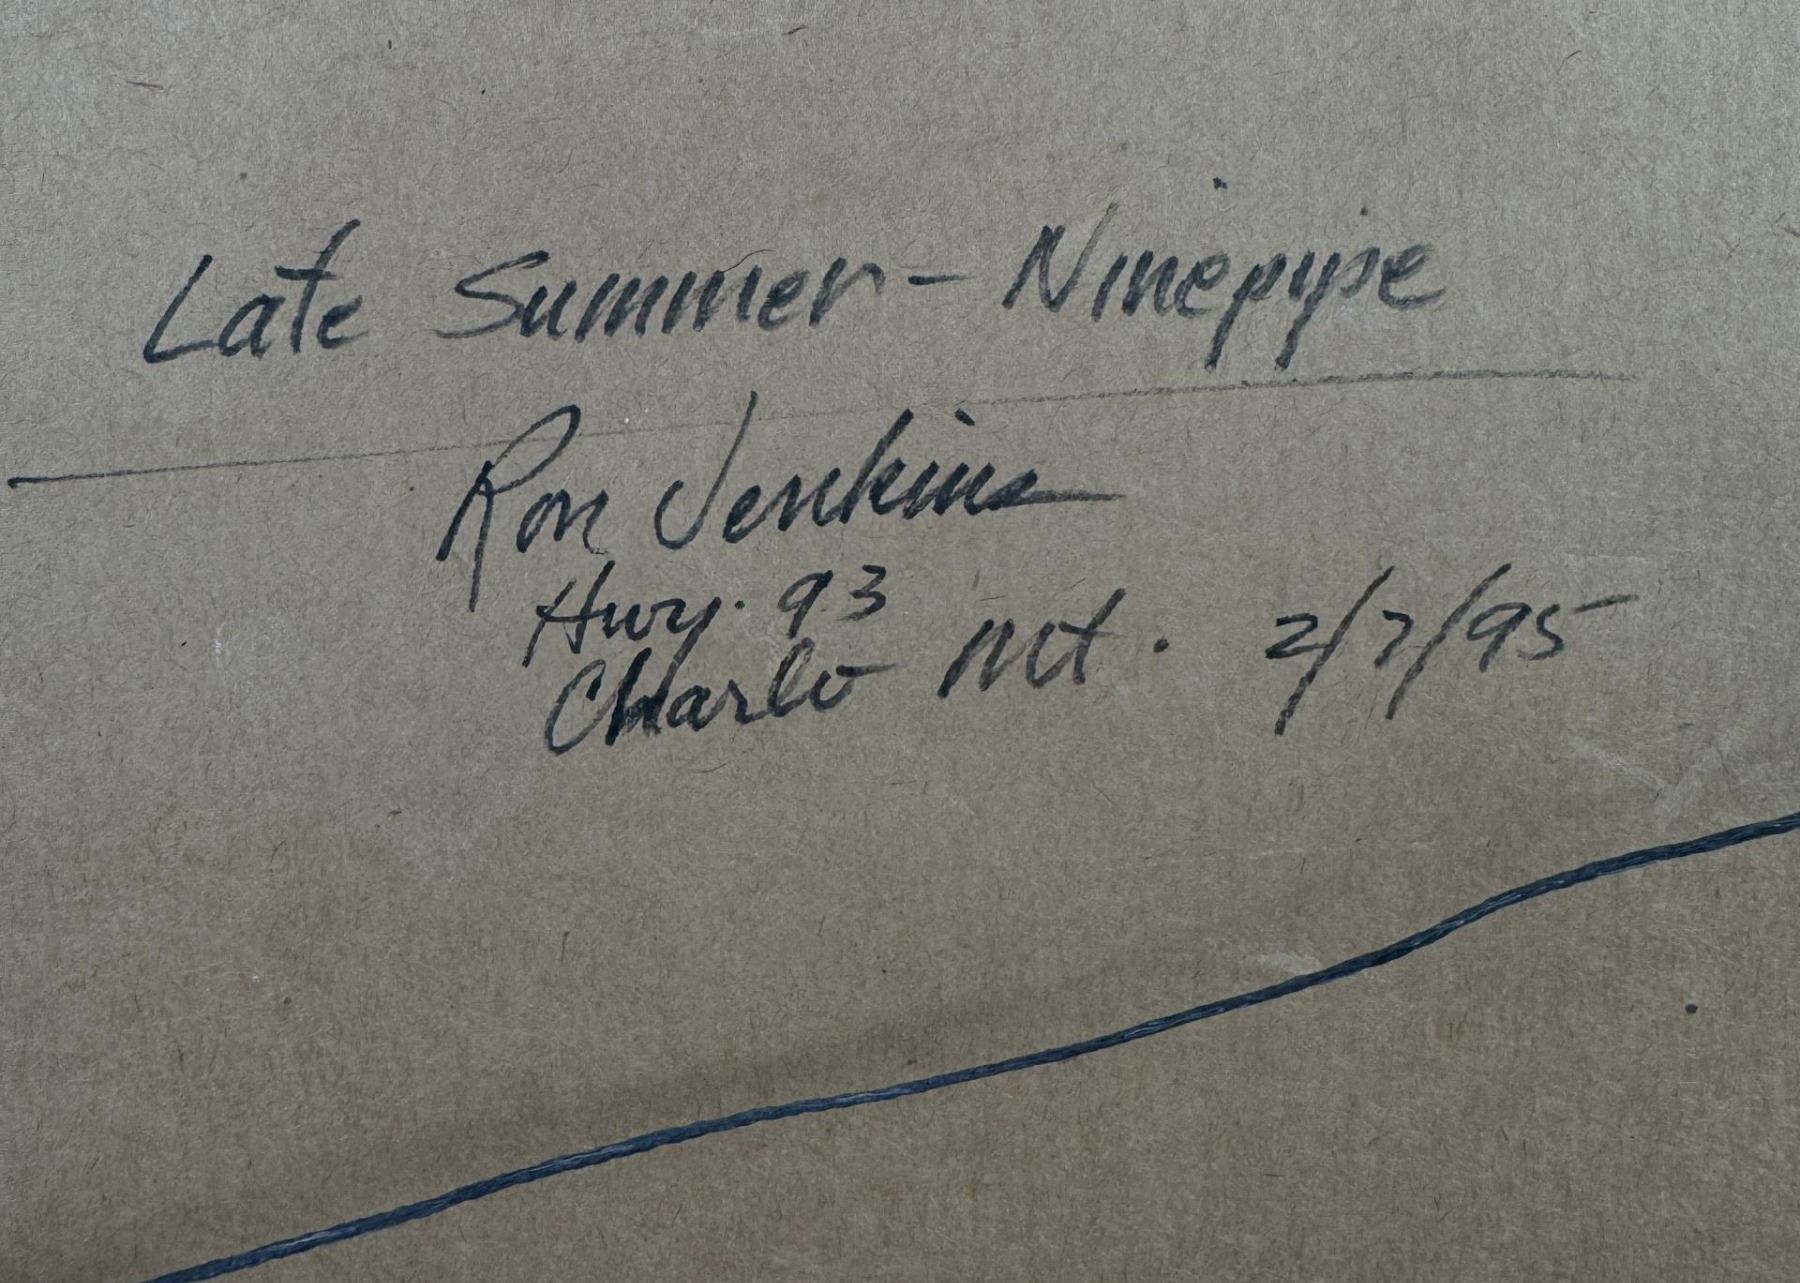 Late Summer - Ninepipe
Ron Jenkins
Hwy. 93
Charlo Mt. 2/7/95